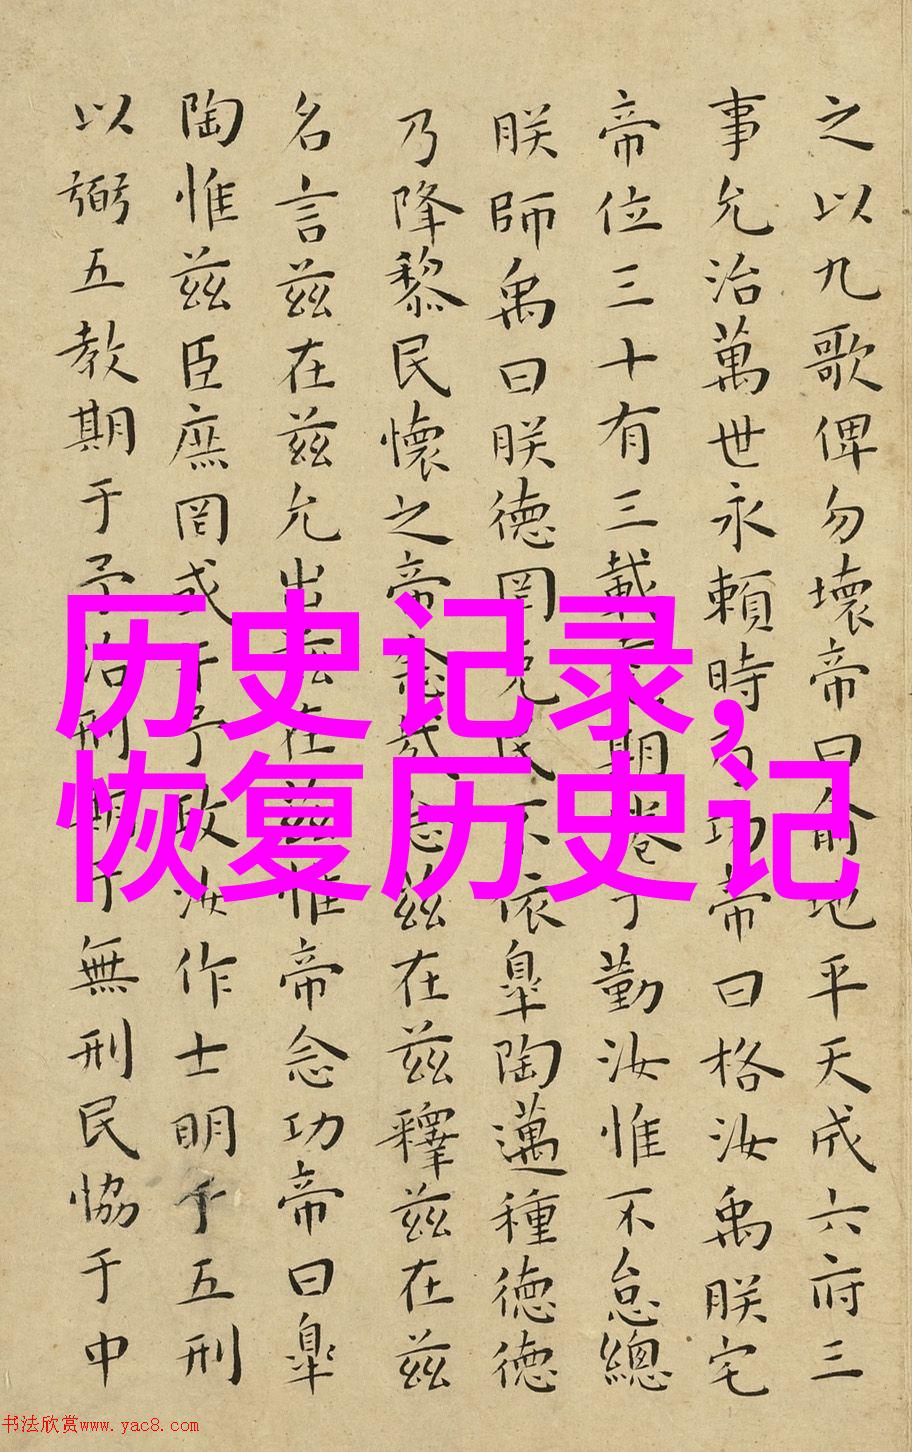 之以九歌俾勿壞帝曰俞地平天成六府三
事允治萬世永賴時乃功帝曰格汝禹朕宅
帝位三十有三載耄期倦于勤汝惟不怠總
朕師禹曰朕德罔克民不依皐陶邁種德德
乃降黎民懷之帝念哉念茲在茲釋茲在茲
名言茲在茲允出茲在茲惟帝念功帝曰皐
陶惟茲臣庶罔或干予政汝作士明于五刑
以弼五教期于予治刑期于無刑民恊于中
历史记录,
恢复历史记
书法欣赏www.yac8.com